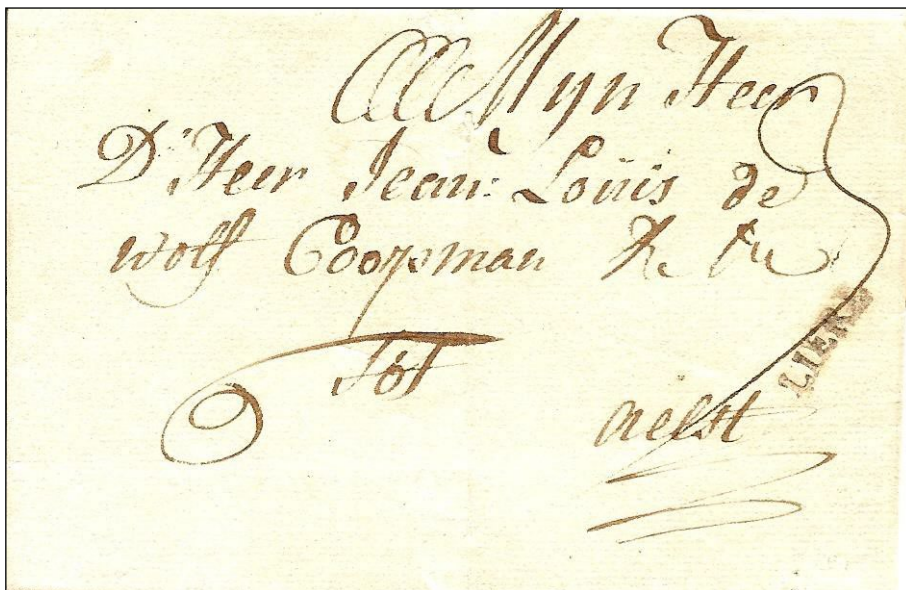 Mijn Heer
D'Heer Jean Louis de
wolff Coopman &
Tot
aelst
LIERE